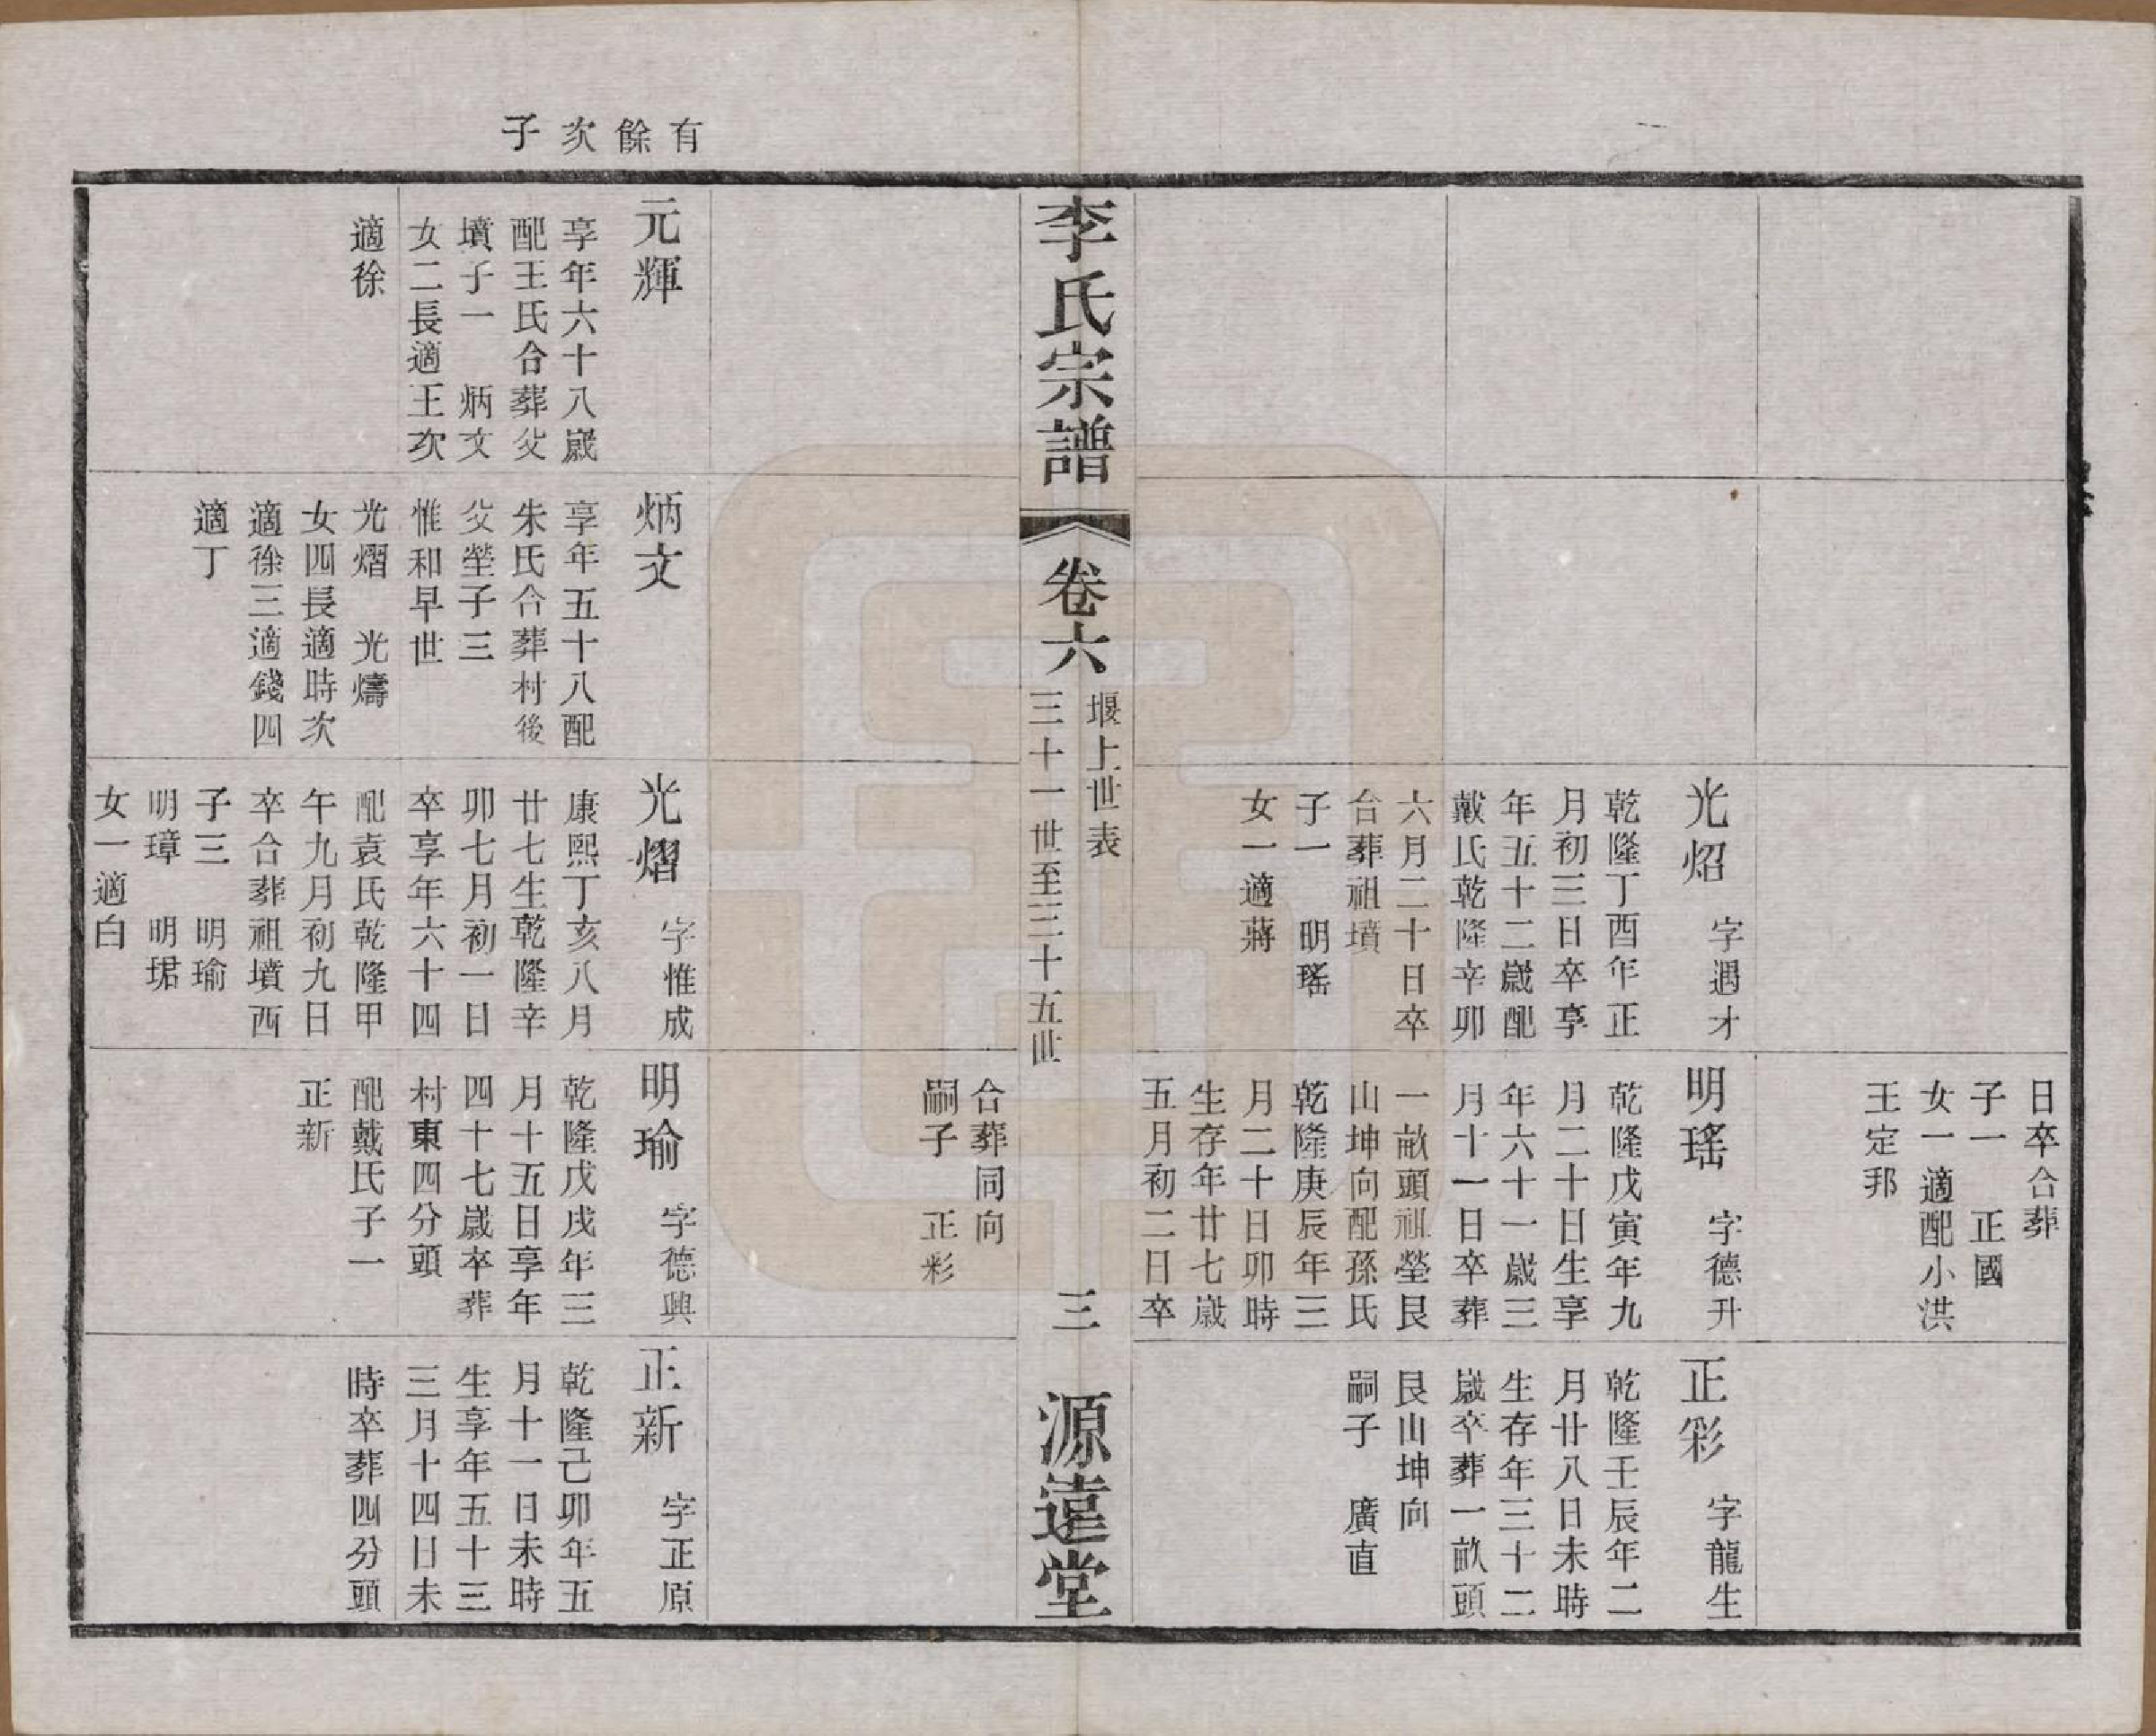 日卒合葬
子一　正國
女一適配小洪
王定邦
光炤　字遇才
乾隆丁酉年正
月初三日卒享
年五十二歲配
戴氏乾隆辛卯
六月二十日卒
合葬祖墳
子一　明瑤
女一適蔣
明瑤　字德升
乾隆戊寅年九
月二十日生享
年六十一歲三
月十一日卒葬
一畝頭祖塋艮
山坤向配孫氏
乾隆庚辰年三
月二十日卯時
生存年廿七歲
五月初二日卒
正彩　字龍生
乾隆壬辰年二
月廿八日未時
生存年三十二
歲卒葬一畝頭
艮山坤向
嗣子　廣直
李氏宗譜
卷六
堰上世表
三十一世至三十五世
三
源遠堂
合葬同向
嗣子　正彩
有餘次子
元輝
享年六十八歲
配王氏合葬父
墳子一　炳文
女二長適王次
適徐
炳文
享年五十八配
朱氏合葬村後
父塋子三
惟和早世
光熠　光燽
女四長適時次
適徐三適錢四
適丁
光熠　字惟成
康熙丁亥八月
廿七生乾隆辛
卯七月初一日
卒享年六十四
配袁氏乾隆甲
午九月初九日
卒合葬祖墳西
子三　明瑜
明璋　明珺
女一適白
明瑜　字德興
乾隆戊戌年三
月十五日享年
四十七歲卒葬
村東四分頭
配戴氏子一
正新
正新　字正原
乾隆己卯年五
月十一日未時
生享年五十三
三月十四日未
時卒葬四分頭